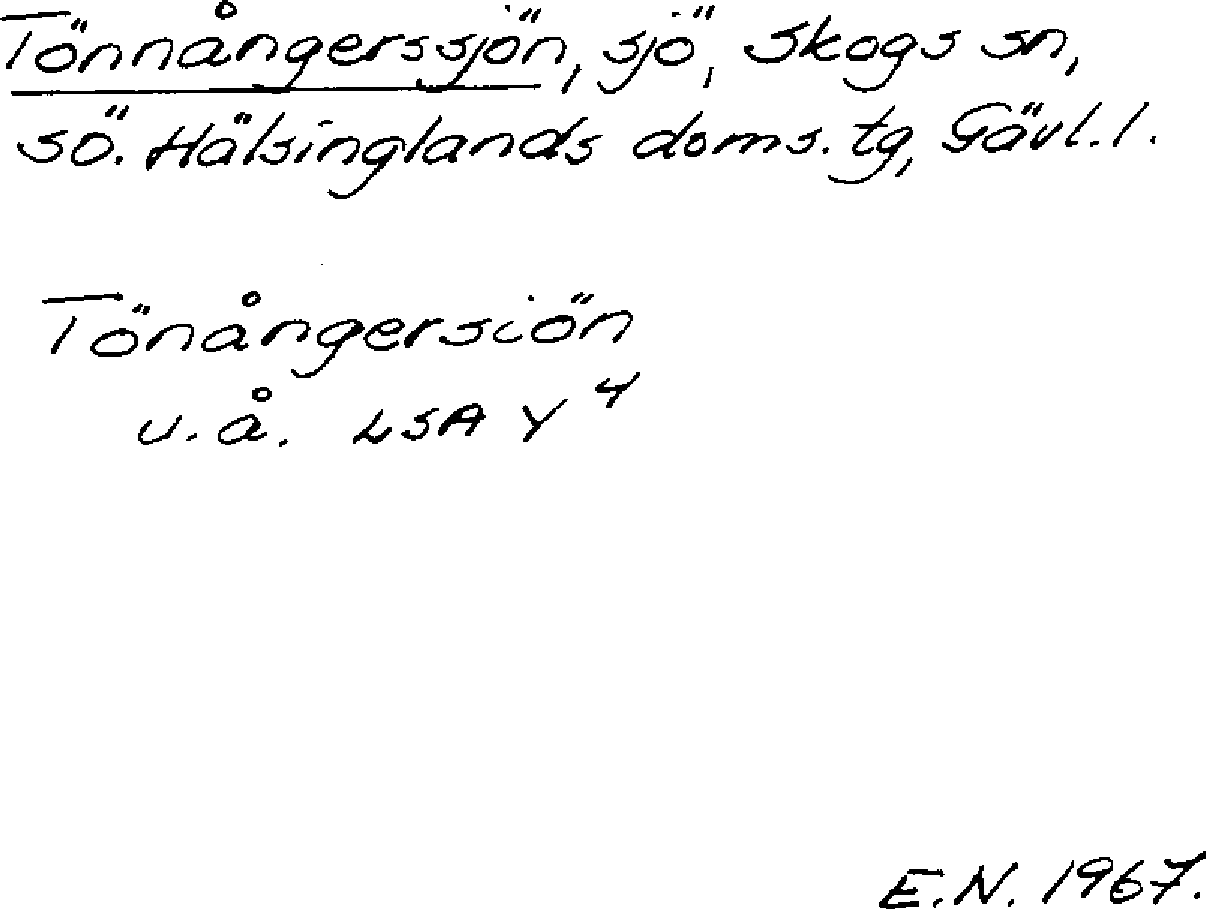 Tönnångerssjön, sjö, Skogs sn,
sö. Hälsinglands doms. tg, Gävl. l.
Tönångersiön
u.å. LSA Y⁴
E.N. 1967.